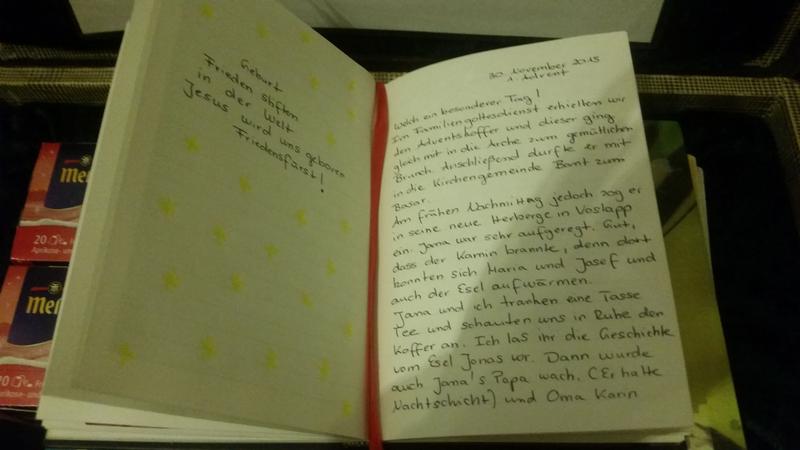 Geburt
Frieden stiften
in der Welt
Jesus wird uns geboren
Friedensfürst!
30. November 2015
1. Advent
Welch ein besonderer Tag!
Im Familiengottesdienst erhielten wir
den Adventskoffer und dieser ging
gleich mit in die Arche zum gemütlichen
Brunch. Anschließend durfte er mit
in die Kirchengemeinde Bant zum
Basar.
Am frühen Nachmittag jedoch zog er
in seine neue Herberge in Voslapp
ein. Jana war sehr aufgeregt. Gut,
dass der Kamin brannte, denn dort
konnten sich Maria und Josef und
auch der Esel aufwärmen.
Jana und ich tranken eine Tasse
Tee und schauten uns in Ruhe den
Koffer an. Ich las ihr die Geschichte
vom Esel Jonas vor. Dann wurde
auch Jana's Papa wach. (Er hatte
Nachtschicht) und Oma Karin
20
20